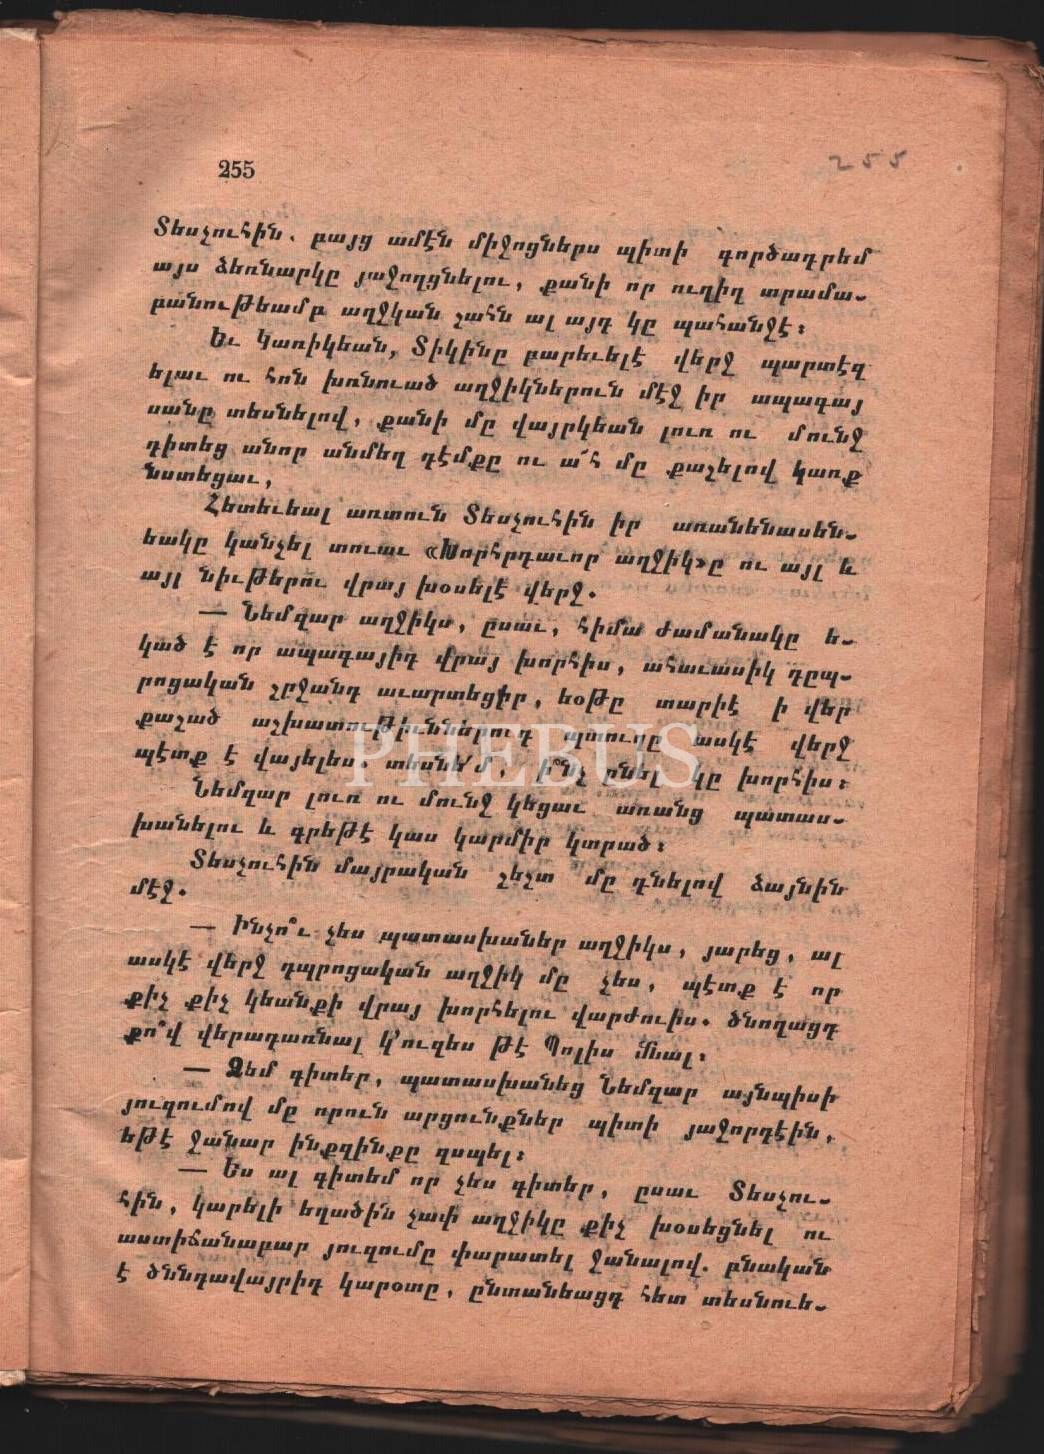 255
255
Տեսչուհին. բայց ամէն միջոցներս պիտի գործադրեմ
այս ձեռնարկը յաջողցնելու, քանի որ ուղիղ տրամա-
բանութեամբ աղջկան շահն ալ այդ կը պահանջէ։
Եւ Կառիկեան, Տիկինը բարեւելէ վերջ պարտէզ
ելաւ ու հոն խռնուած աղջիկներուն մէջ իր ապագայ
սանը տեսնելով, քանի մը վայրկեան լուռ ու մունջ
դիտեց անոր անմեղ դէմքը ու ա՜հ մը քաշելով կառք
նստեցաւ,
Հետեւեալ առտուն Տեսչուհին իր առանենասեն-
եակը կանչել տուաւ «Խորհրդաւոր աղջիկ»ը ու այլ և
այլ նիւթերու վրայ խօսելէ վերջ.
— Նեմզար աղջիկս, ըսաւ, հիմա ժամանակը ե-
կած է որ ապագայիդ վրայ խորհիս, ահաւասիկ դըպ-
րոցական շրջանդ աւարտեցիր, եօթը տարիէ ի վեր
քաշած աշխատութիւններուդ պտուղը ասկէ վերջ
պէտք է վայելես. տեսնե՛մ, ի՞նչ ընել կը խորհիս։
Նեմզար լուռ ու մունջ կեցաւ առանց պատաս-
խանելու և գրեթէ կաս կարմիր կտրած։
Տեսչուհին մայրական շեշտ մը դնելով ձայնին
մէջ.
— Ինչո՞ւ չես պատասխաներ աղջիկս, յարեց, ալ
ասկէ վերջ դպրոցական աղջիկ մը չես, պէտք է որ
քիչ քիչ կեանքի վրայ խորհելու վարժուիս. ծնողացդ
քո՞վ վերադառնալ կ'ուզես թէ Պոլիս մնալ,
— Չեմ գիտեր, պատասխանեց Նեմզար այնպիսի
յուզումով մը որուն արցունքներ պիտի յաջորդէին,
եթէ ջանար ինքզինքը զսպել։
— Ես ալ գիտեմ որ չես գիտեր, ըսաւ Տեսչու-
հին, կարելի եղածին չափ աղջիկը քիչ խօսեցնել ու
աստիճանաբար յուզումը փարատել ջանալով. բնական
է ծննդավայրիդ կարօտը, ընտանեացդ հետ տեսնուե-
PHEBUS